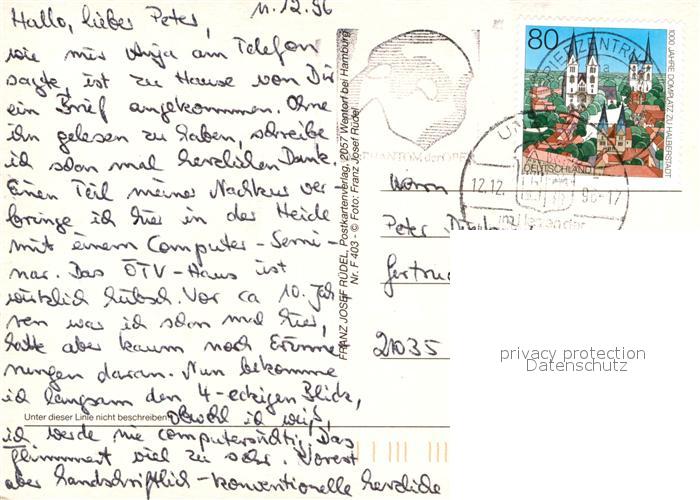 11.12.96
Hallo, lieber Peter,
wie mir Anja am Telefon
sagte, ist zu Hause von Dir
ein Brief angekommen. Ohne
ihn gelesen zu haben, schreibe
ich schon mal herzlichen Dank.
Einen Teil meiner Nachkur ver-
bringe ich hier in der Heide
mit einem Computer-Semi-
nar. Das ÖTV-Haus ist
wirklich hübsch. Vor ca 10 Jah-
ren war ich schon mal hier,
hatte aber kaum noch Erinne-
rungen daran. Nun bekomme
ich langsam den 4-eckigen Blick,
obwohl ich weiß,
ich werde nie computersüchtig. Das
flimmert viel zu sehr. Vorerst
aber handschriftlich-konventionelle herzliche
Unter dieser Linie nicht beschreiben
FRANZ JOSEF RÜDEL, Postkartenverlag, 2057 Wentorf bei Hamburg
Nr. F 403 - © Foto: Franz Josef Rüdel
PHANTOM der OPER
80
DEUTSCHLAND
1000 JAHRE DOMPLATZ ZU HALBERSTADT
BRIEFZENTRUM
12.12. 96-17
Herrn
Peter
Gertrud
21035
privacy protection
Datenschutz